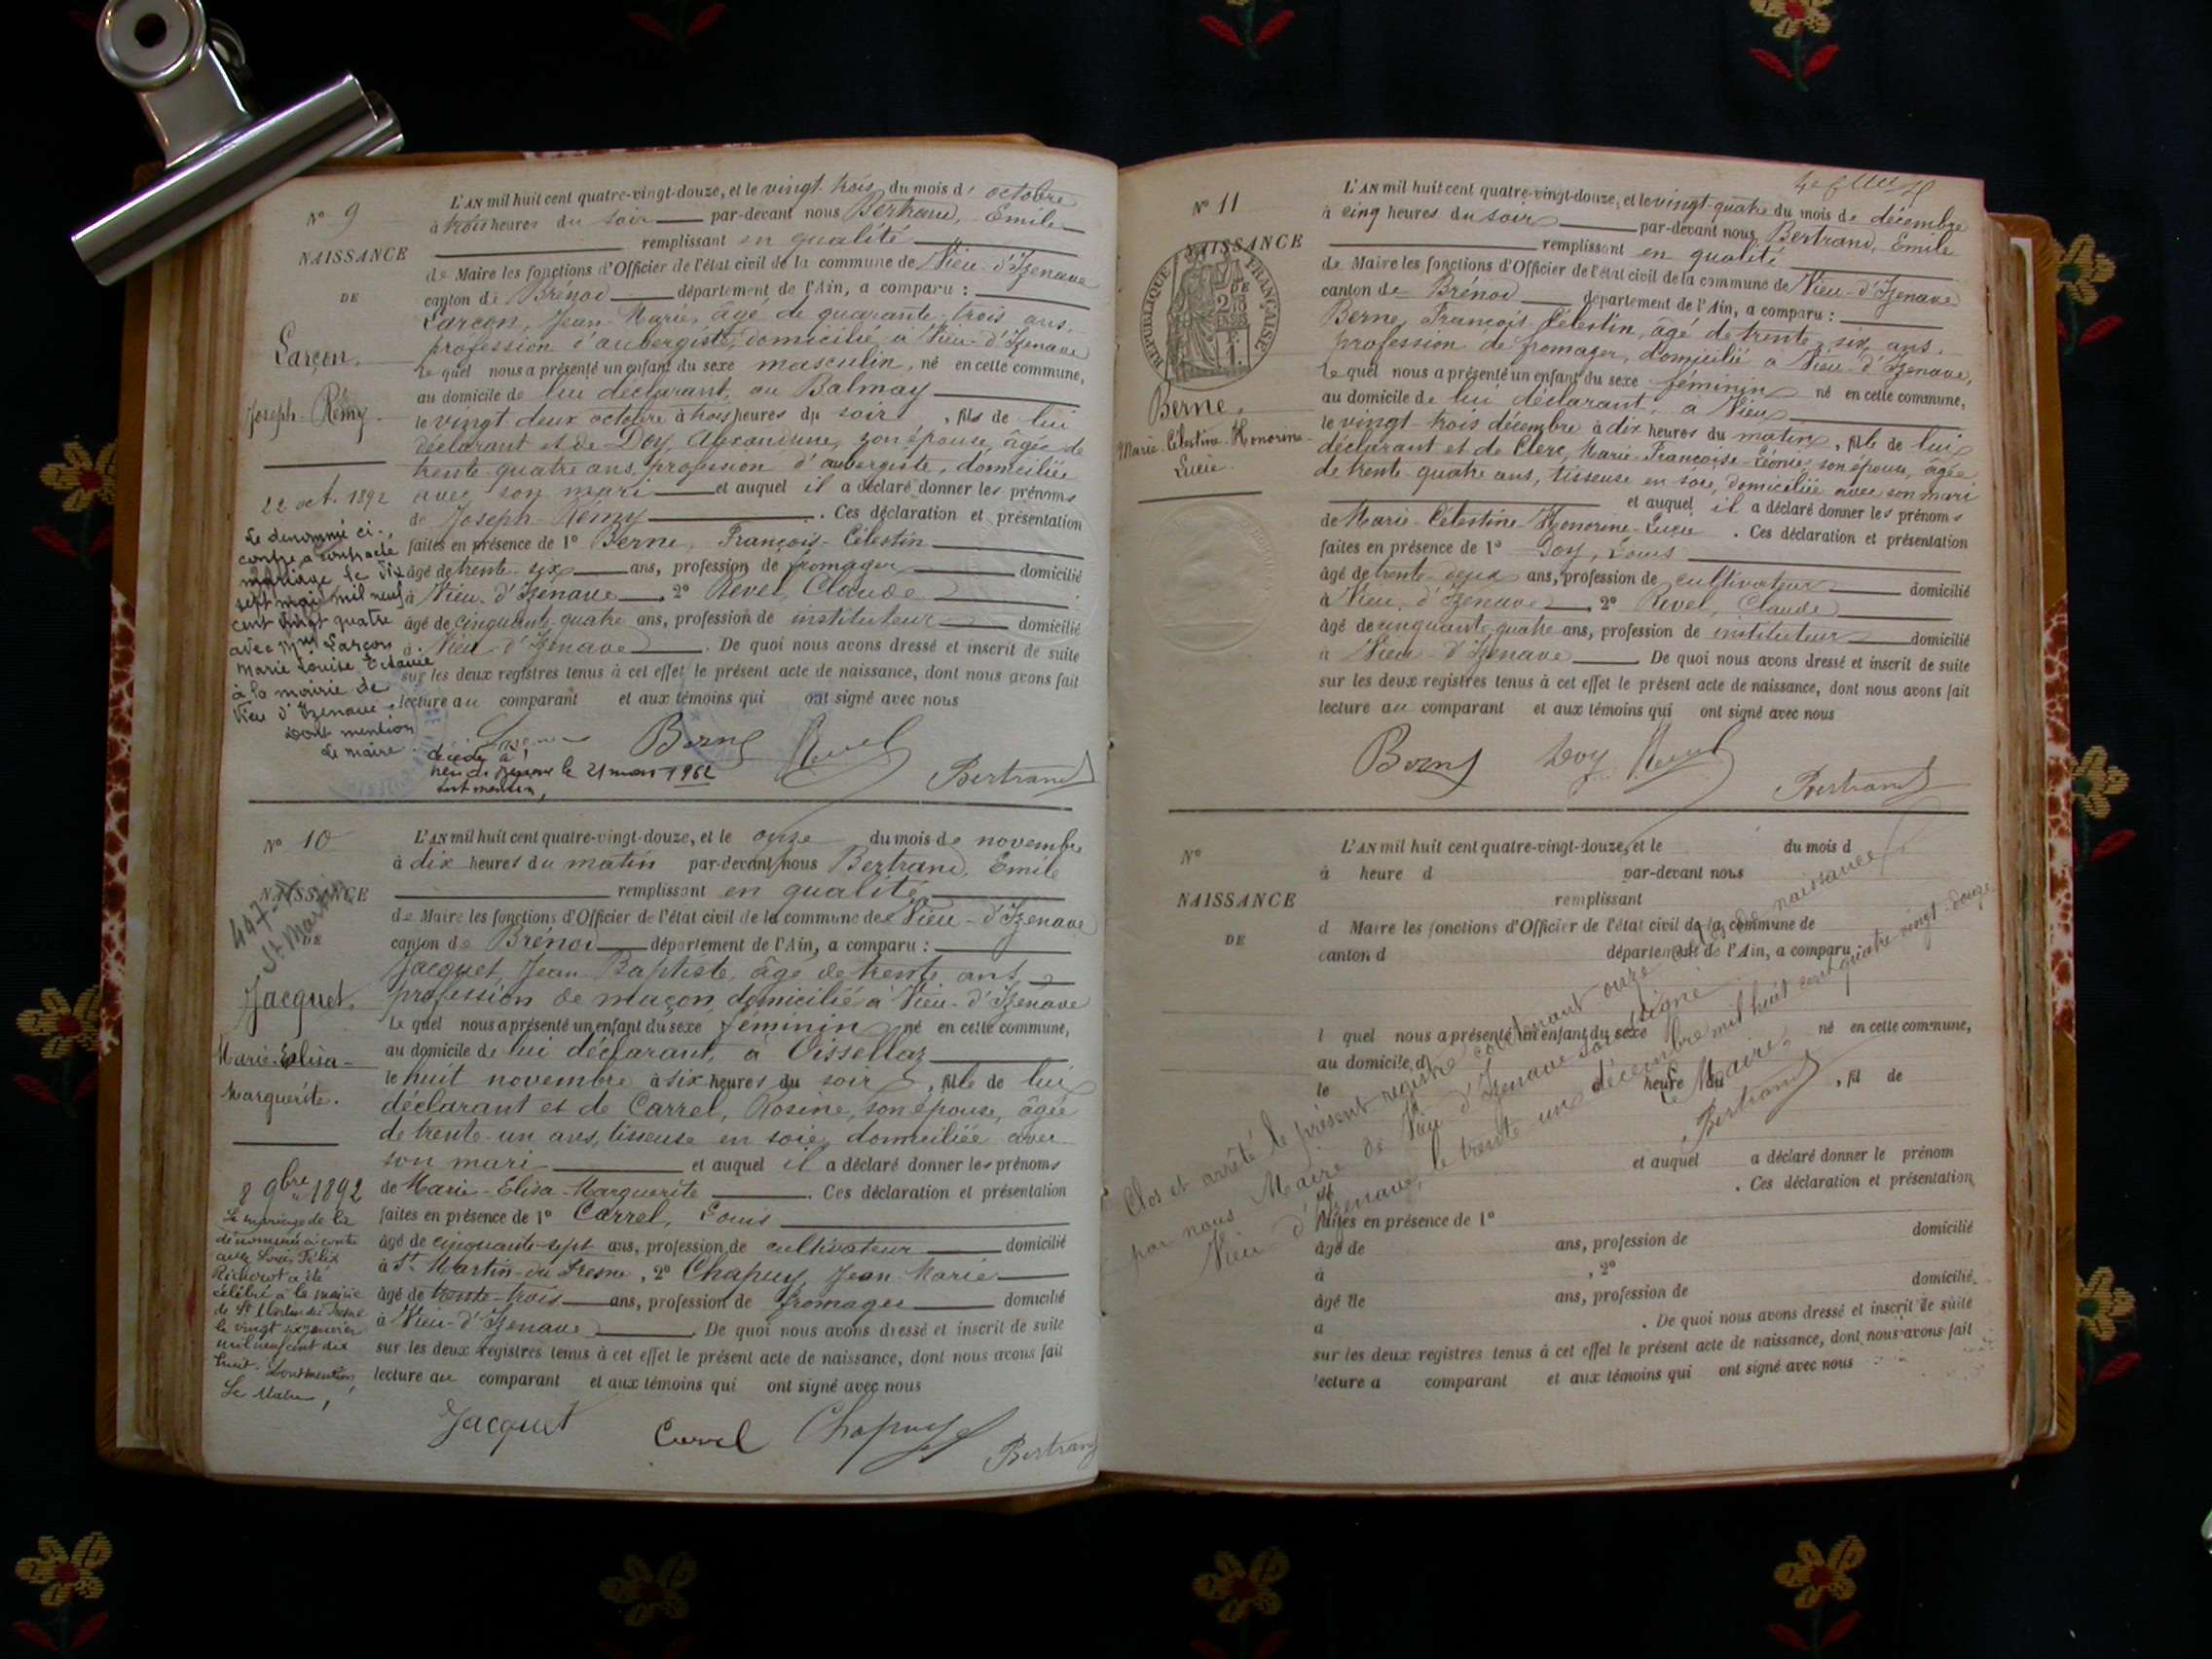 N° 9
NAISSANCE
DE
Larçon.
Joseph-Rémy.
22 oct. 1892
Le dénommé ci-
contre a contracté
mariage le dix
sept mai mil neuf
cent vingt quatre
avec Mlle Larçon
Marie Louise Octavie
à la mairie de
Vieu d'Izenave.
Dont mention
Le maire.
L'AN mil huit cent quatre-vingt-douze, et le vingt-trois du mois d'octobre
à trois heures du soir par-devant nous Bertrand, Emile
remplissant en qualité
de Maire les fonctions d'Officier de l'état civil de la commune de Vieu-d'Izenave
canton de Brénod département de l'Ain, a comparu :
Larçon, Jean-Marie, âgé de quarante-trois ans,
profession d'aubergiste, domicilié à Vieu-d'Izenave
Lequel nous a présenté un enfant du sexe masculin, né en cette commune,
au domicile de lui déclarant, au Balmay
le vingt deux octobre à trois heures du soir, fils de lui
déclarant et de Doy, Alexandrine, son épouse, âgée de
trente-quatre ans, profession d'aubergiste, domiciliée
avec son mari et auquel il a déclaré donner les prénoms
de Joseph-Rémy. Ces déclaration et présentation
faites en présence de 1° Berne, François-Célestin
âgé de trente-six ans, profession de fromager domicilié
à Vieu-d'Izenave, 2° Revel, Claude
âgé de cinquante-quatre ans, profession de instituteur domicilié
à Vieu-d'Izenave. De quoi nous avons dressé et inscrit de suite
sur les deux registres tenus à cet effet le présent acte de naissance, dont nous avons fait
lecture au comparant et aux témoins qui ont signé avec nous
Larçon Berne Revel
Bertrand
Décédé à
Vieu d'Izenave le 21 mars 1962
dont mention,
N° 10
NAISSANCE
DE
St Martin
Jacquet.
Marie-Elisa-
Marguerite.
8 9bre 1892
Le mariage de la
dénommée ci-contre
avec Louis Félix
a été
célébré à la mairie
de St Martin du Fresne
le vingt six janvier
mil neuf cent dix
huit. Dont mention
Le Maire,
L'AN mil huit cent quatre-vingt-douze, et le onze du mois de novembre
à dix heures du matin par-devant nous Bertrand, Emile
remplissant en qualité
de Maire les fonctions d'Officier de l'état civil de la commune de Vieu-d'Izenave
canton de Brénod département de l'Ain, a comparu :
Jacquet, Jean-Baptiste, âgé de trente ans,
profession de maçon domicilié à Vieu-d'Izenave
Lequel nous a présenté un enfant du sexe féminin né en cette commune,
au domicile de lui déclarant, à Oissellaz
le huit novembre à six heures du soir, fille de lui
déclarant et de Carrel, Rosine, son épouse, âgée
de trente-un ans, tisseuse en soie, domiciliée avec
son mari et auquel il a déclaré donner les prénoms
de Marie-Elisa-Marguerite. Ces déclaration et présentation
faites en présence de 1° Carrel, Louis
âgé de cinquante-sept ans, profession de cultivateur domicilié
à St Martin-du Fresne, 2° Chapuy, Jean-Marie
âgé de trente-trois ans, profession de fromager domicilié
à Vieu-d'Izenave. De quoi nous avons dressé et inscrit de suite
sur les deux registres tenus à cet effet le présent acte de naissance, dont nous avons fait
lecture au comparant et aux témoins qui ont signé avec nous
Jacquet Carrel Chapuy
Bertrand
N° 11
NAISSANCE
RÉPUBLIQUE FRANÇAISE
Berne,
Marie-Célestine-Honorine-
Lucie.
L'AN mil huit cent quatre-vingt-douze, et le vingt-quatre du mois de décembre
à cinq heures du soir par-devant nous Bertrand, Emile
remplissant en qualité
de Maire les fonctions d'Officier de l'état civil de la commune de Vieu-d'Izenave
canton de Brénod département de l'Ain, a comparu :
Berne, François-Célestin, âgé de trente-six ans.
profession de fromager, domicilié à Vieu-d'Izenave,
Lequel nous a présenté un enfant du sexe féminin né en cette commune,
au domicile de lui déclarant, à Vieu
le vingt-trois décembre à dix heures du matin, fille de lui
déclarant et de Clerc, Marie-Françoise-Léonie, son épouse, âgée
de trente-quatre ans, tisseuse en soie, domiciliée avec son mari
et auquel il a déclaré donner les prénoms
de Marie-Célestine-Honorine-Lucie. Ces déclaration et présentation
faites en présence de 1° Doy, Louis
âgé de trente-deux ans, profession de cultivateur domicilié
à Vieu-d'Izenave, 2° Revel, Claude
âgé de cinquante-quatre ans, profession de instituteur domicilié
à Vieu-d'Izenave. De quoi nous avons dressé et inscrit de suite
sur les deux registres tenus à cet effet le présent acte de naissance, dont nous avons fait
lecture au comparant et aux témoins qui ont signé avec nous
Berne Doy Revel
Bertrand
N°
NAISSANCE
DE
L'AN mil huit cent quatre-vingt-douze, et le du mois d
à heure d par-devant nous
remplissant
d Maire les fonctions d'Officier de l'état civil de la commune de
canton d département de l'Ain, a comparu :
l quel nous a présenté un enfant du sexe né en cette commune,
au domicile d
le à heure du , fil de
et auquel a déclaré donner le prénom
. Ces déclaration et présentation
faites en présence de 1°
âgé de ans, profession de domicilié
à , 2°
âgé de ans, profession de domicilié
à . De quoi nous avons dressé et inscrit de suite
sur les deux registres tenus à cet effet le présent acte de naissance, dont nous avons fait
lecture a comparant et aux témoins qui ont signé avec nous
Clos et arrêté le présent registre contenant onze actes de naissance
par nous Maire de Vieu d'Izenave soussigné
Vieu d'Izenave, le trente un décembre mil huit cent quatre-vingt-douze
Le Maire,
Bertrand